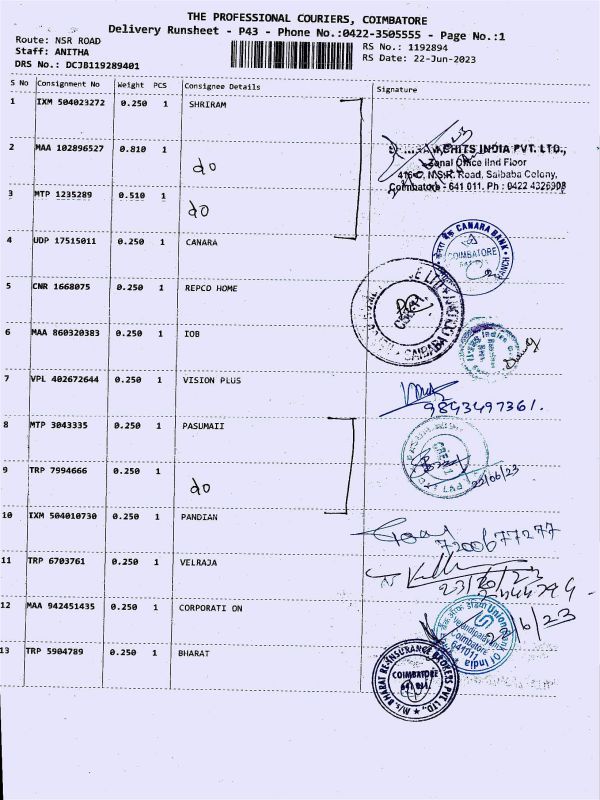 THE PROFESSIONAL COURIERS, COIMBATORE
Delivery Runsheet - P43 - Phone No.:0422-3505555 - Page No.:1
Route: NSR ROAD
RS No.: 1192894
Staff: ANITHA
RS Date: 22-Jun-2023
DRS No.: DCJB119289401
S No Consignment No Weight PCS Consignee Details Signature
1 IXM 504023272 0.250 1 SHRIRAM
2 MAA 102896527 0.810 1 do
CHITS INDIA PVT. LTD.,
Zonal Office IInd Floor
Road, Saibaba Colony,
Coimbatore - 641 011. Ph : 0422 4326908
3 MTP 1235289 0.510 1 do
4 UDP 17515011 0.250 1 CANARA
CANARA BANK
COIMBATORE
5 CNR 1668075 0.250 1 REPCO HOME
SAIBABA
6 MAA 860320383 0.250 1 IOB
7 VPL 402672644 0.250 1 VISION PLUS
9843497361.
8 MTP 3043335 0.250 1 PASUMAII
9 TRP 7994666 0.250 1 do
22/06/23
10 IXM 504010730 0.250 1 PANDIAN
7200677277
11 TRP 6703761 0.250 1 VELRAJA
12 MAA 942451435 0.250 1 CORPORATI ON
Union Bank of India
Coimbatore
641011
13 TRP 5904789 0.250 1 BHARAT
M/s. BHARAT RE-INSURANCE BROKERS PVT LTD.,
COIMBATORE
641 011.